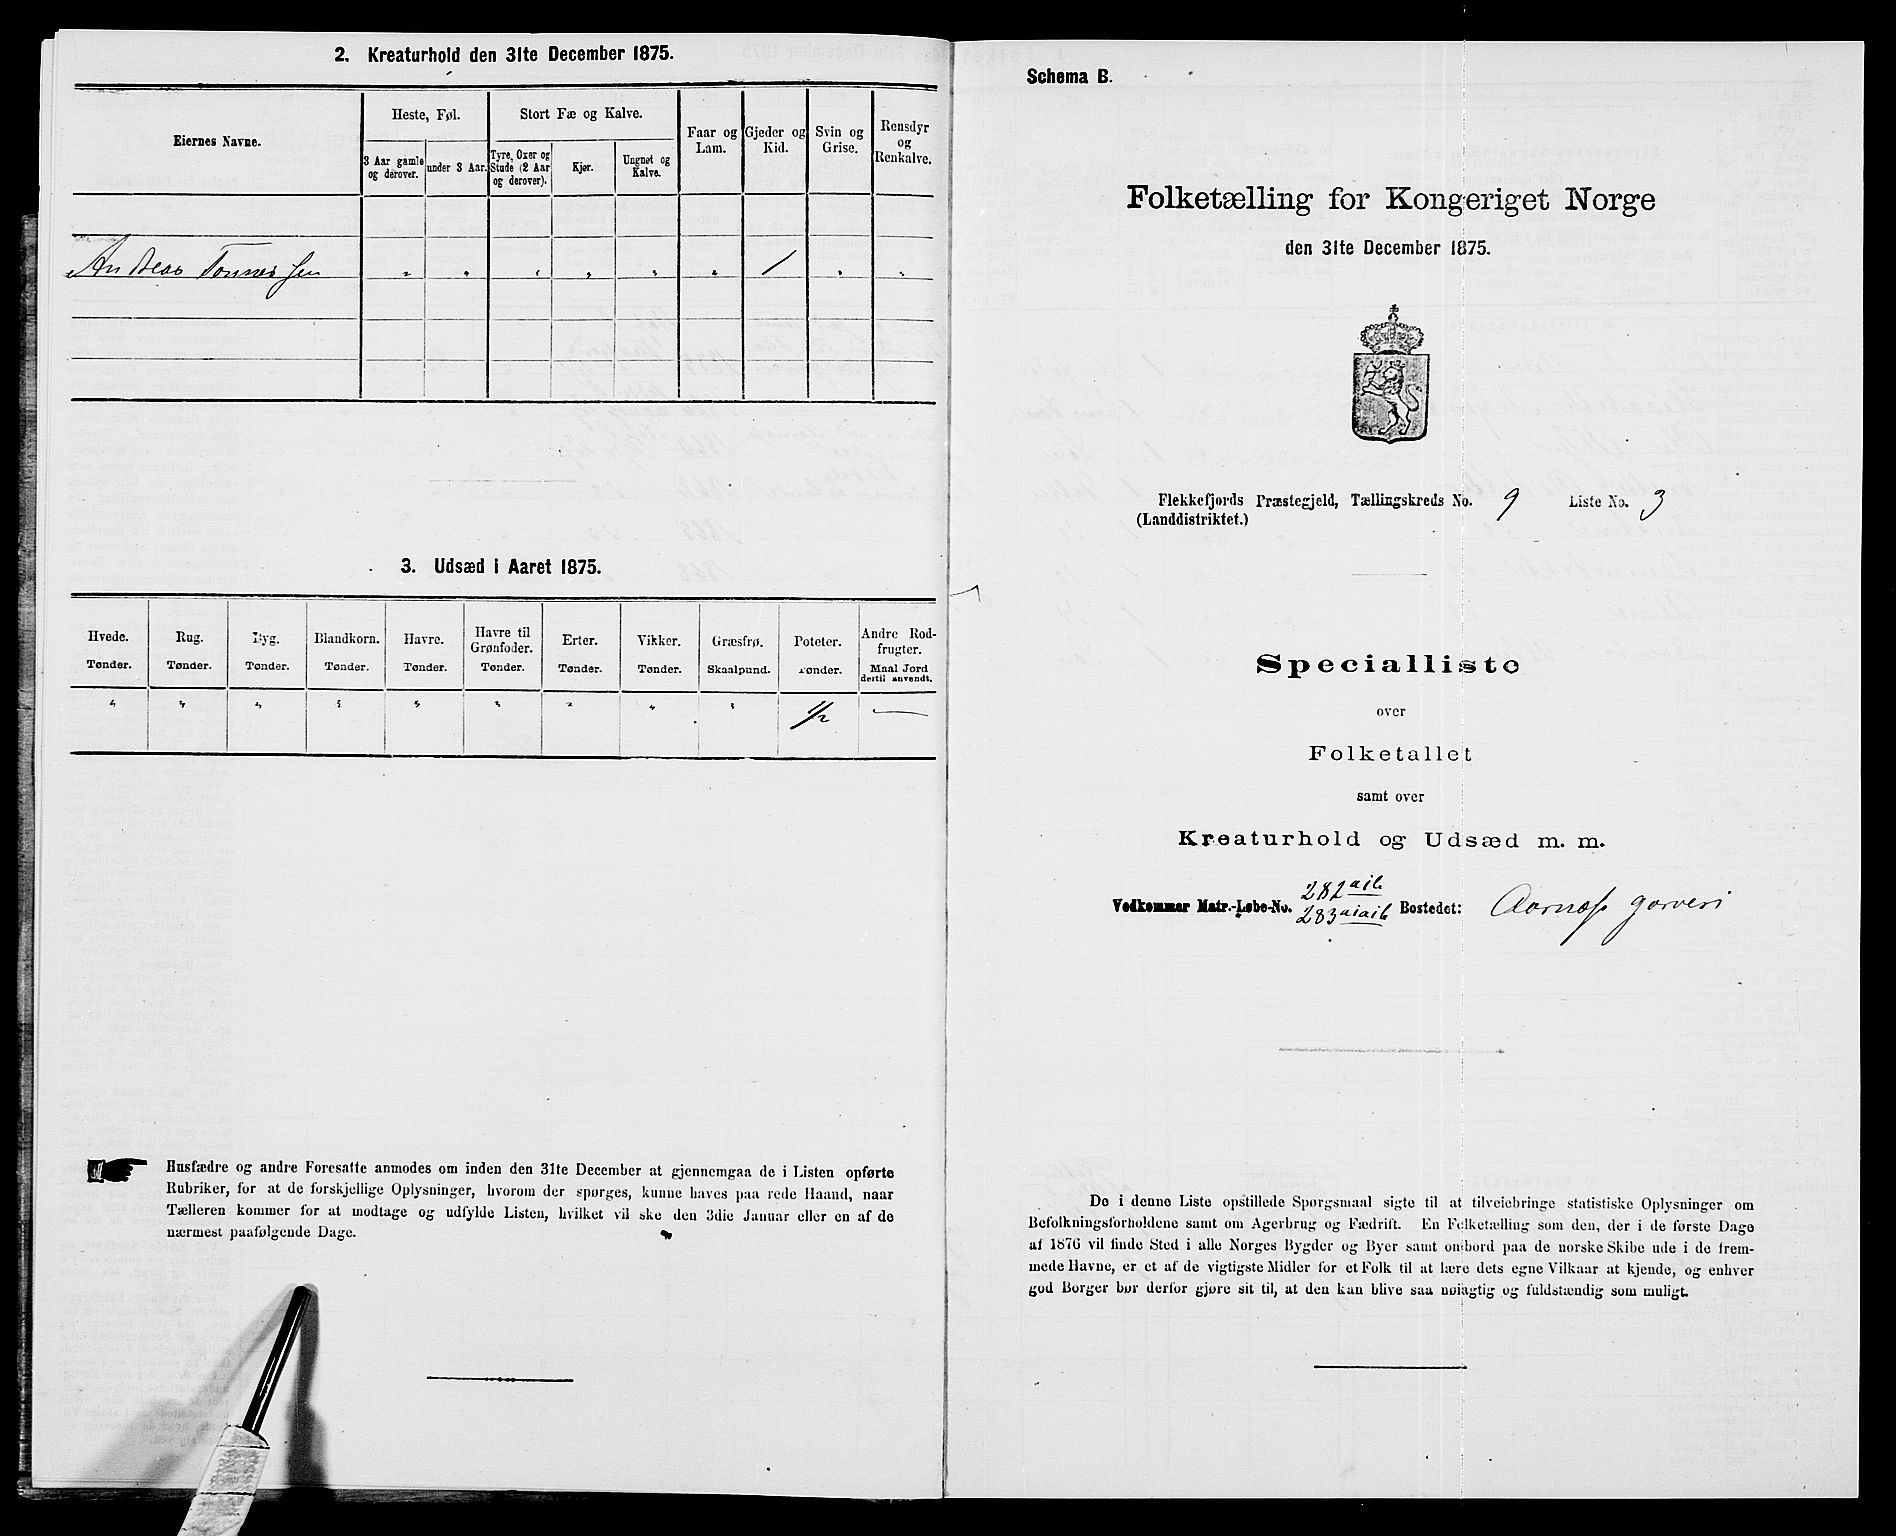 2. Kreaturhold den 31te December 1875.
Eiernes Navne.
Heste, Føl.
3 Aar gamle og derover.
under 3 Aar.
Stort Fæ og Kalve.
Tyre, Oxer og Stude (2 Aar og derover).
Kjør.
Ungnøt og Kalve.
Faar og Lam.
Gjeder og Kid.
Svin og Grise.
Rensdyr og Renkalve.
Andreas Tønnessen " " " " " " 1 " "
3. Udsæd i Aaret 1875.
Hvede. Tønder.
Rug. Tønder.
Byg. Tønder.
Blandkorn. Tønder.
Havre. Tønder.
Havre til Grønfoder. Tønder.
Erter. Tønder.
Vikker. Tønder.
Græsfrø. Skaalpund.
Poteter. Tønder.
Andre Rodfrugter. Maal Jord dertil anvendt.
" " " " " " " " " 1/2 —
Husfædre og andre Foresatte anmodes om inden den 31te December at gjennemgaa de i Listen opførte
Rubriker, for at de forskjellige Oplysninger, hvorom der spørges, kunne haves paa rede Haand, naar
Tælleren kommer for at modtage og udfylde Listen, hvilket vil ske den 3die Januar eller en af de
nærmest paafølgende Dage.
Schema B.
Folketælling for Kongeriget Norge
den 31te December 1875.
Flekkefjords Præstegjeld, Tællingskreds No. 9 Liste No. 3
(Landdistriktet.)
Specialliste
over
Folketallet
samt over
Kreaturhold og Udsæd m. m.
Vedkommer Matr.-Løbe-No. 282 aib 283 aiaib Bostedet: Aarnæs garveri
De i denne Liste opstillede Spørgsmaal sigte til at tilveiebringe statistiske Oplysninger om
Befolkningsforholdene samt om Agerbrug og Fædrift. En Folketælling som den, der i de første Dage
af 1876 vil finde Sted i alle Norges Bygder og Byer samt ombord paa de norske Skibe ude i de frem-
mede Havne, er et af de vigtigste Midler for et Folk til at lære dets egne Vilkaar at kjende, og enhver
god Borger bør derfor gjøre sit til, at den kan blive saa nøiagtig og fuldstændig som muligt.